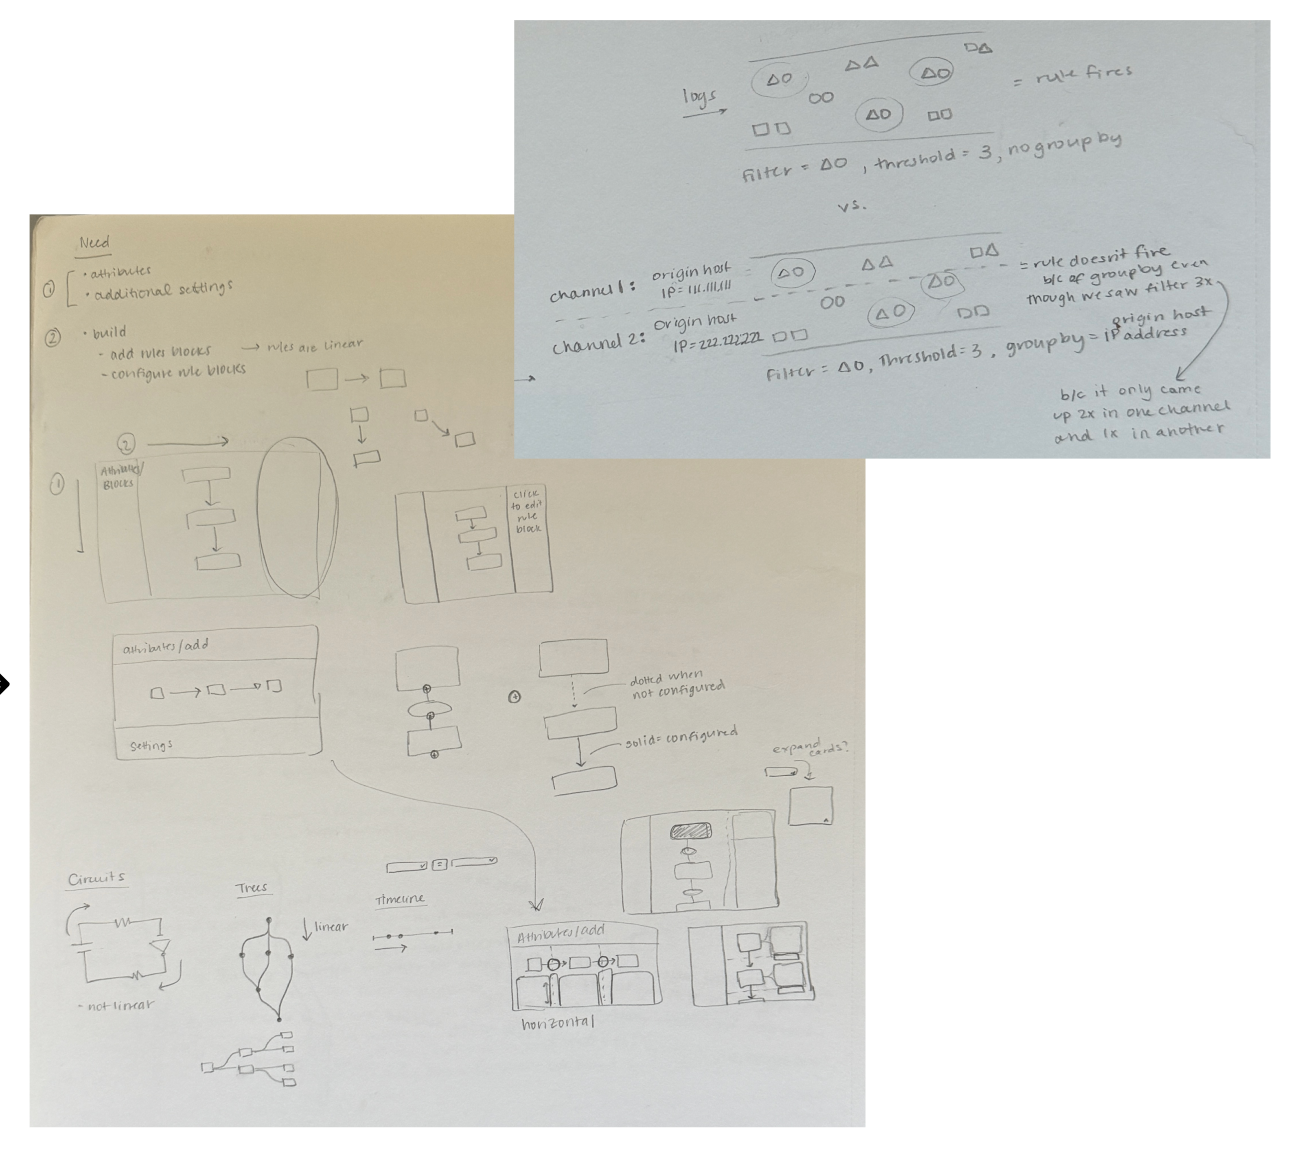 logs
= rule fires
filter = △○, threshold = 3, no group by
vs.
channel 1: origin host
IP = 111.111.111
= rule doesn't fire
b/c of group by even
though we saw filter 3x
channel 2: origin host
IP = 222.222.222
filter = △○, Threshold = 3, group by = origin host
IP address
b/c it only came
up 2x in one channel
and 1x in another
Need
① • attributes
• additional settings
② • build
- add rules blocks → rules are linear
- configure rule blocks
②
①
Attribute/
BLOCKS
click
to edit
rule
block
attributes/add
settings
dotted when
not configured
solid = configured
expand
cards?
Circuits
- not linear
Trees
linear
=
Timeline
Attributes/add
horizontal